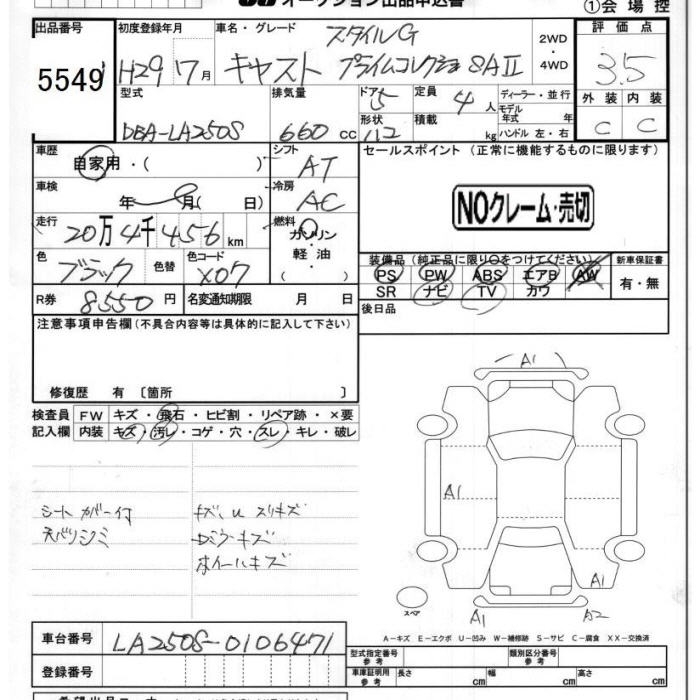 オークション出品申込書
①会場控
出品番号
5549
初度登録年月
H29 7月
車名・グレード
スタイルG
キャスト プライムコレクション SAⅡ
2WD
・
4WD
評価点
3.5
外装 内装
C C
型式
DBA-LA250S
排気量
660 cc
ドア 5
形状 ハコ
定員 4 人
積載 kg
ディーラー・並行
モデル
年式 年
ハンドル 左・右
車歴
自家用・( )
シフト
AT
車検
年 月( 日)
冷房
AC
走行
20万4千456 km
燃料
ガソリン
・
軽油
( )
色
ブラック
色替
色コード
X07
R券 8550 円
名変通知期限 月 日
セールスポイント (正常に機能するものに限ります)
NOクレーム・売切
装備品 (純正品に限り○をつけてください)
PS PW ABS エアB AW
SR ナビ TV カワ
新車保証書
有・無
後日品
注意事項申告欄(不具合内容等は具体的に記入して下さい)
修復歴 有 〔箇所 〕
検査員
記入欄
FW キズ・飛石・ヒビ割・リペア跡・×要
内装 キズ・汚レ・コゲ・穴・スレ・キレ・破レ
シートカバー付
天バリシミ
キズ、U スリキズ
Dミラーキズ
ホイールキズ
A1
A1
A1
A1
A2
スペア
A-キズ E-エクボ U-凹み W-補修跡 S-サビ C-腐食 XX-交換済
車台番号
LA250S-0106471
登録番号
型式指定番号
参考
類別区分番号
参考
車庫証明用
参考
長さ cm
幅 cm
高さ cm